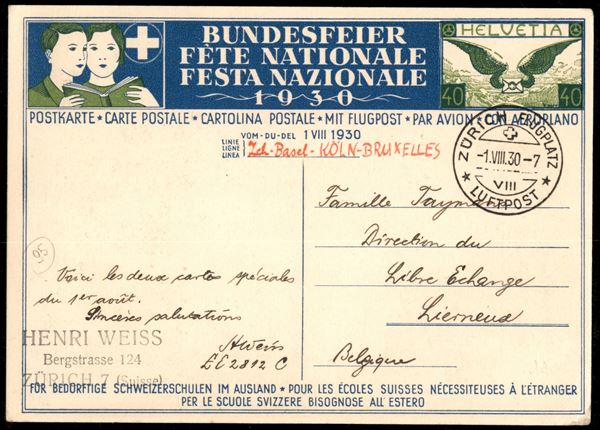 BUNDESFEIER
FÊTE NATIONALE
FESTA NAZIONALE
1930
HELVETIA
40 40
POSTKARTE ★ CARTE POSTALE ★ CARTOLINA POSTALE ★ MIT FLUGPOST ★ PAR AVION ★ CON AEROPLANO
VOM·DU·DEL 1 VIII 1930
LINIE
LIGNE
LINEA
Zch-Basel-KÖLN-BRUXELLES
ZÜRICH FLUGPLATZ
-1.VIII.30-7
VIII
LUFTPOST
Famille Tayman
Direction du
Libre Echange
Lierneux
Belgique
50
Voici les deux cartes spéciales
du 1er août.
Sincères salutations
HWeiss
EC2812 C
HENRI WEISS
Bergstrasse 124
ZÜRICH 7 (Suisse)
FÜR BEDÜRFTIGE SCHWEIZERSCHULEN IM AUSLAND ★ POUR LES ÉCOLES SUISSES NÉCESSITEUSES À L'ÉTRANGER
PER LE SCUOLE SVIZZERE BISOGNOSE ALL'ESTERO